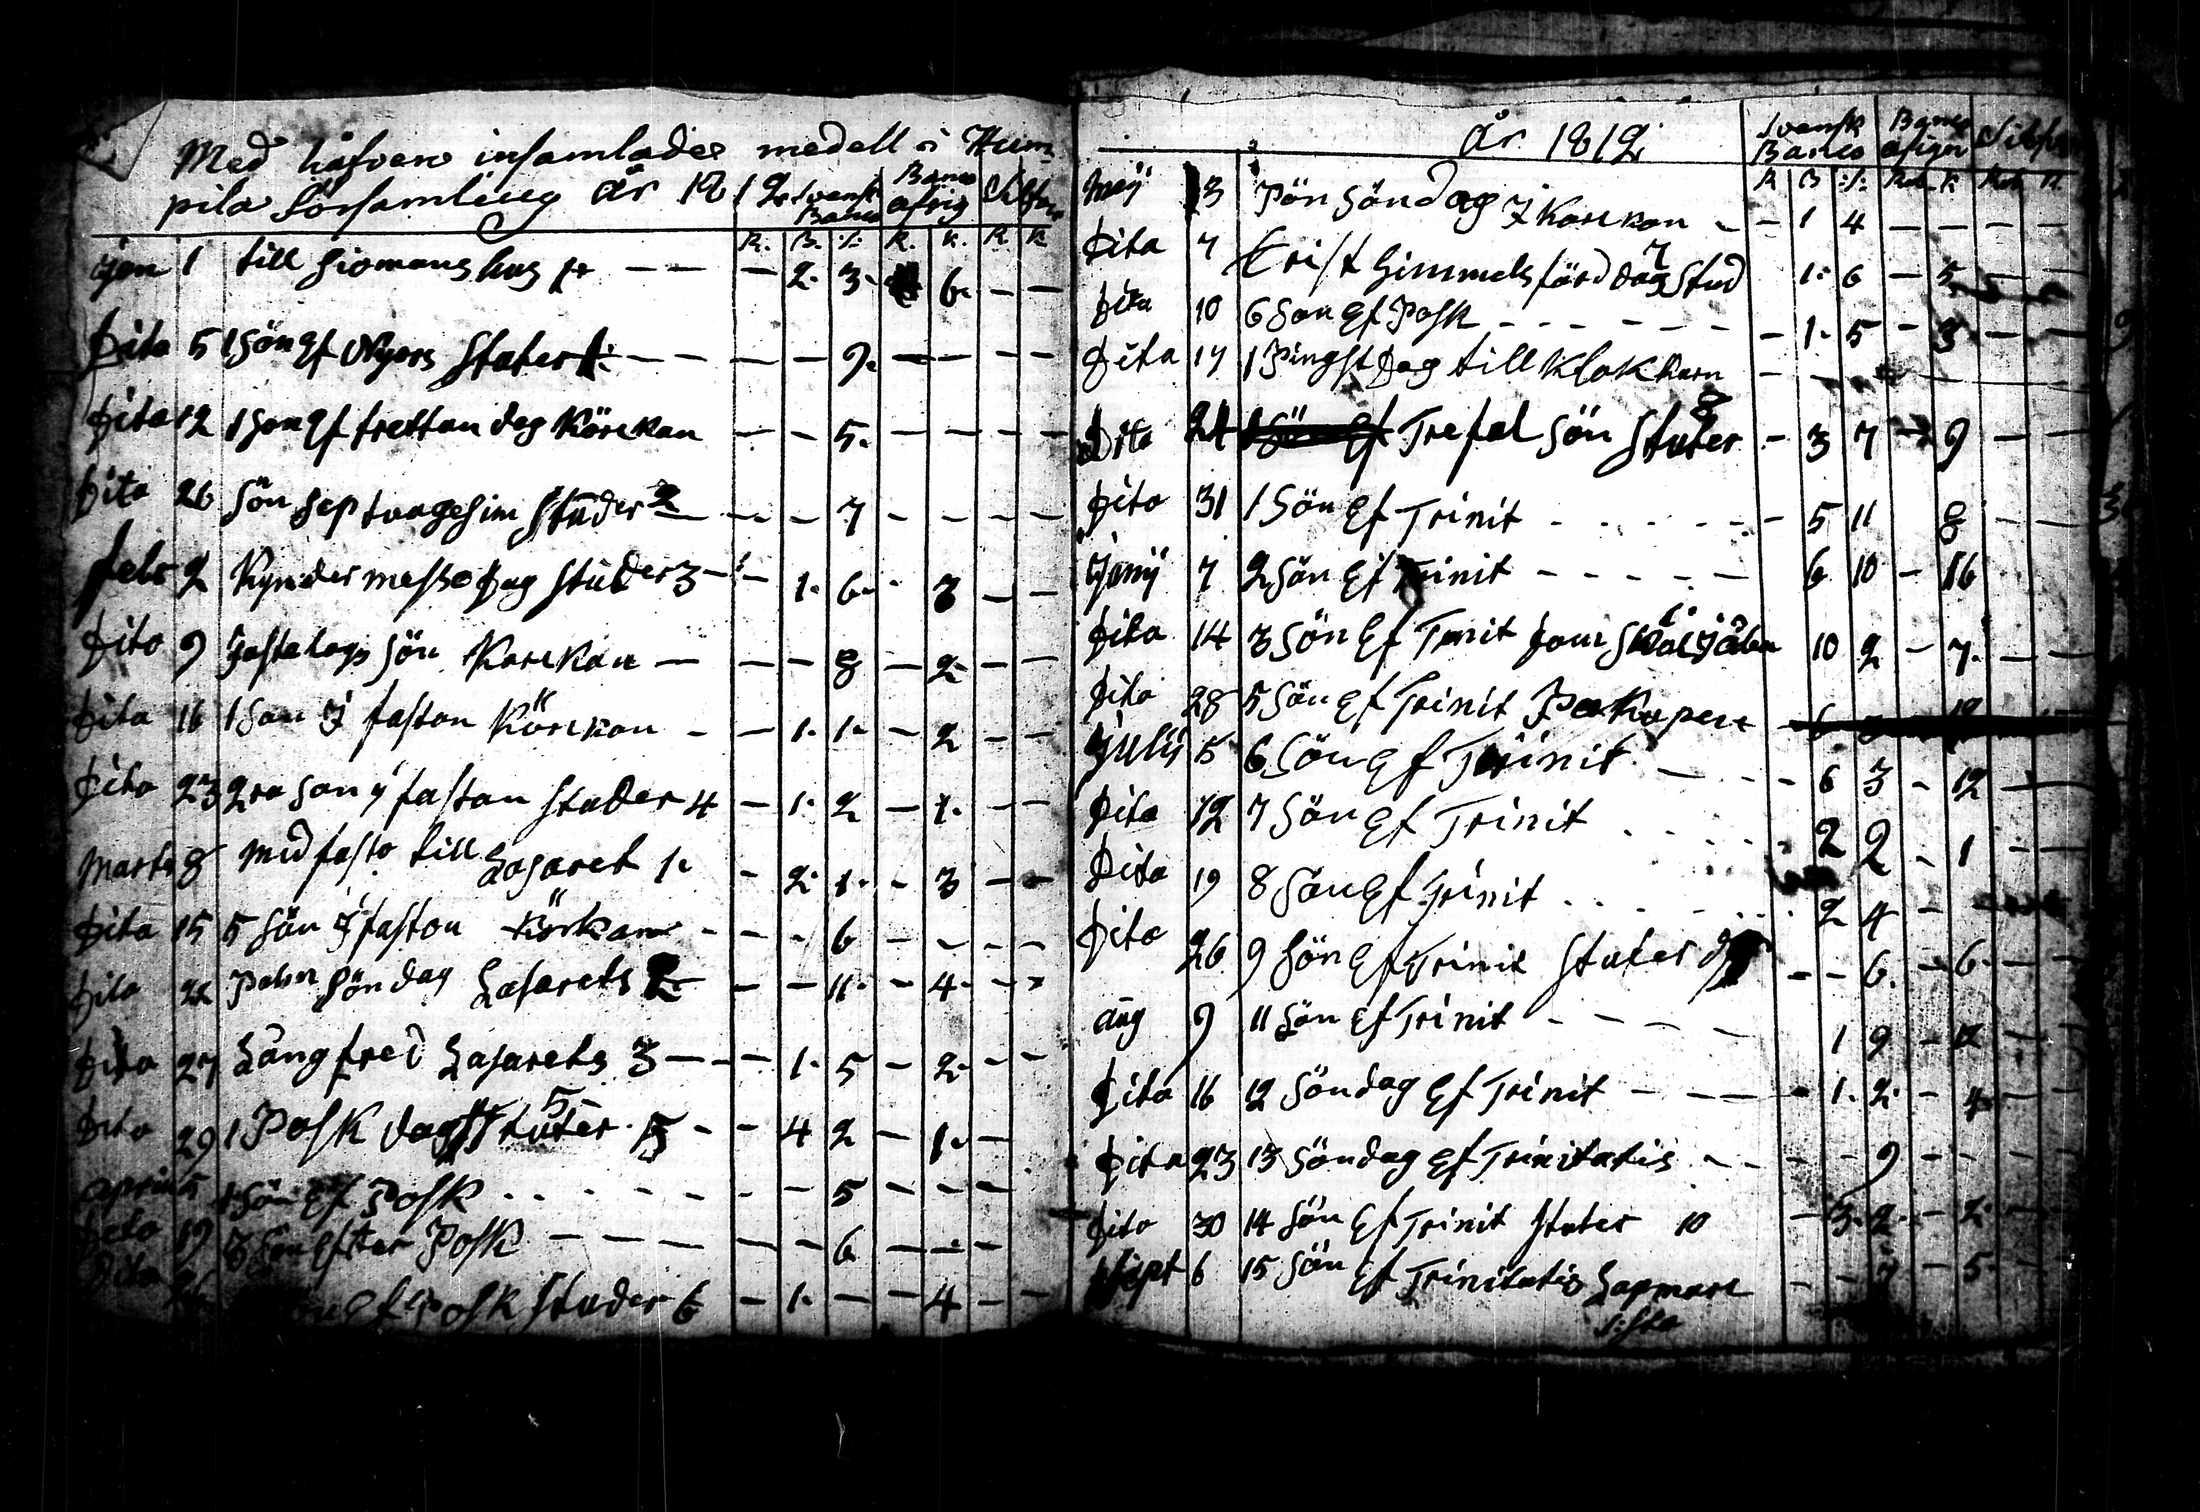 Med håfven insamlade medell i Hum-
pila Församling År 1812
Svensk Banco Banco asig Silfver
R. B. S. R. K. R. K
Jan 1 till Siomans hus 1 — — — 2. 3. 6. — —
Dito 5 1 Sön Ef Nyors Stater 1: — — — — 9. — — — —
Dito 12 1 Son Ef trettan dag Körckan — — 5. — — — —
Dito 26 Sön Septuagesim Studer 2 — — — 7 — — — —
febr 2 Kynder messo Dag Studer 3 — — 1. 6. - 3 — —
Dito 9 fastelags Sön Korckan — — — 8 — 2 — —
Dito 16 1 Son I fastan Körckan - — 1. 1. — 2 — —
Dito 23 2ra Son y fastan Studer 4 — 1. 2 — 1. — —
Marts 8 Mid fasto till Lasaret 1. - 2. 1. - 3 — —
Dito 15 5 Sön I faston Körkan - - - 6 - - - -
Dito 22 Palm Söndag Lasarets 2 — — 11. - 4. - -
Dito 27 Lång fred Lasarets 3 — — — 1. 5 — 2. — —
Dito 29 1 Posk dag Stater 5 - - 4 2 — 1. —
April 5 1 Sön Ef Posk . . . - - - - - 5 - - -
Dito 19 3 Son Efter Posk — — — — — — 6 — — —
Dito 26 Ef Posk Studer 6 — 1. — — 4 — —
År 1812
Svensk Banco Banco asign Silfver
R B S. Rub K Rub K
Maij 3 Bön Söndag I Korckan - — 1 4 — — — —
Dito 7 Crist Himmels färd dag Stud 7 1. 6 — 5
Dito 10 6 Son Ef Posk - - - - - - - 1. 5 - 3
Dito 17 1 Pingst Dag till Klokkarn — — — — —
Dito 24 Trefal Sön Stater 8 - 3 7 - 9 —
Dito 31 1 Sön Ef Trinit - . . . . - - 5 11 8 — —
Junij 7 2 Sön Ef Trinit - - - - - 6 10 — 16
Dito 14 3 Sön Ef Trinit 10 2 - 7. — —
Dito 28 5 Sön Ef Trinit
Julij 5 6 Sön Ef Trinit — - - - 6 3 - 12 —
Dito 12 7 Sön Ef Trinit . . . . 2 2 - 1 —
Dito 19 8 Sön Ef Trinit . . . . . . 2 4 —
Dito 26 9 Sön Ef Trinit Stater — — 6. — 6. — —
Aug 9 11 Sön Ef Trinit - - - - 1 9 — 12 — —
Dito 16 12 Söndag Ef Trinit — - — — — 1. 2. — 4 —
Dito 23 13 Söndag Ef Trinitatis - - - - - 9 - - -
Dito 30 14 Sön Ef Trinit Stater 10 — 3. 2. — 2. —
Sept 6 15 Sön Ef Trinitatis Lapmarc - - - 5.